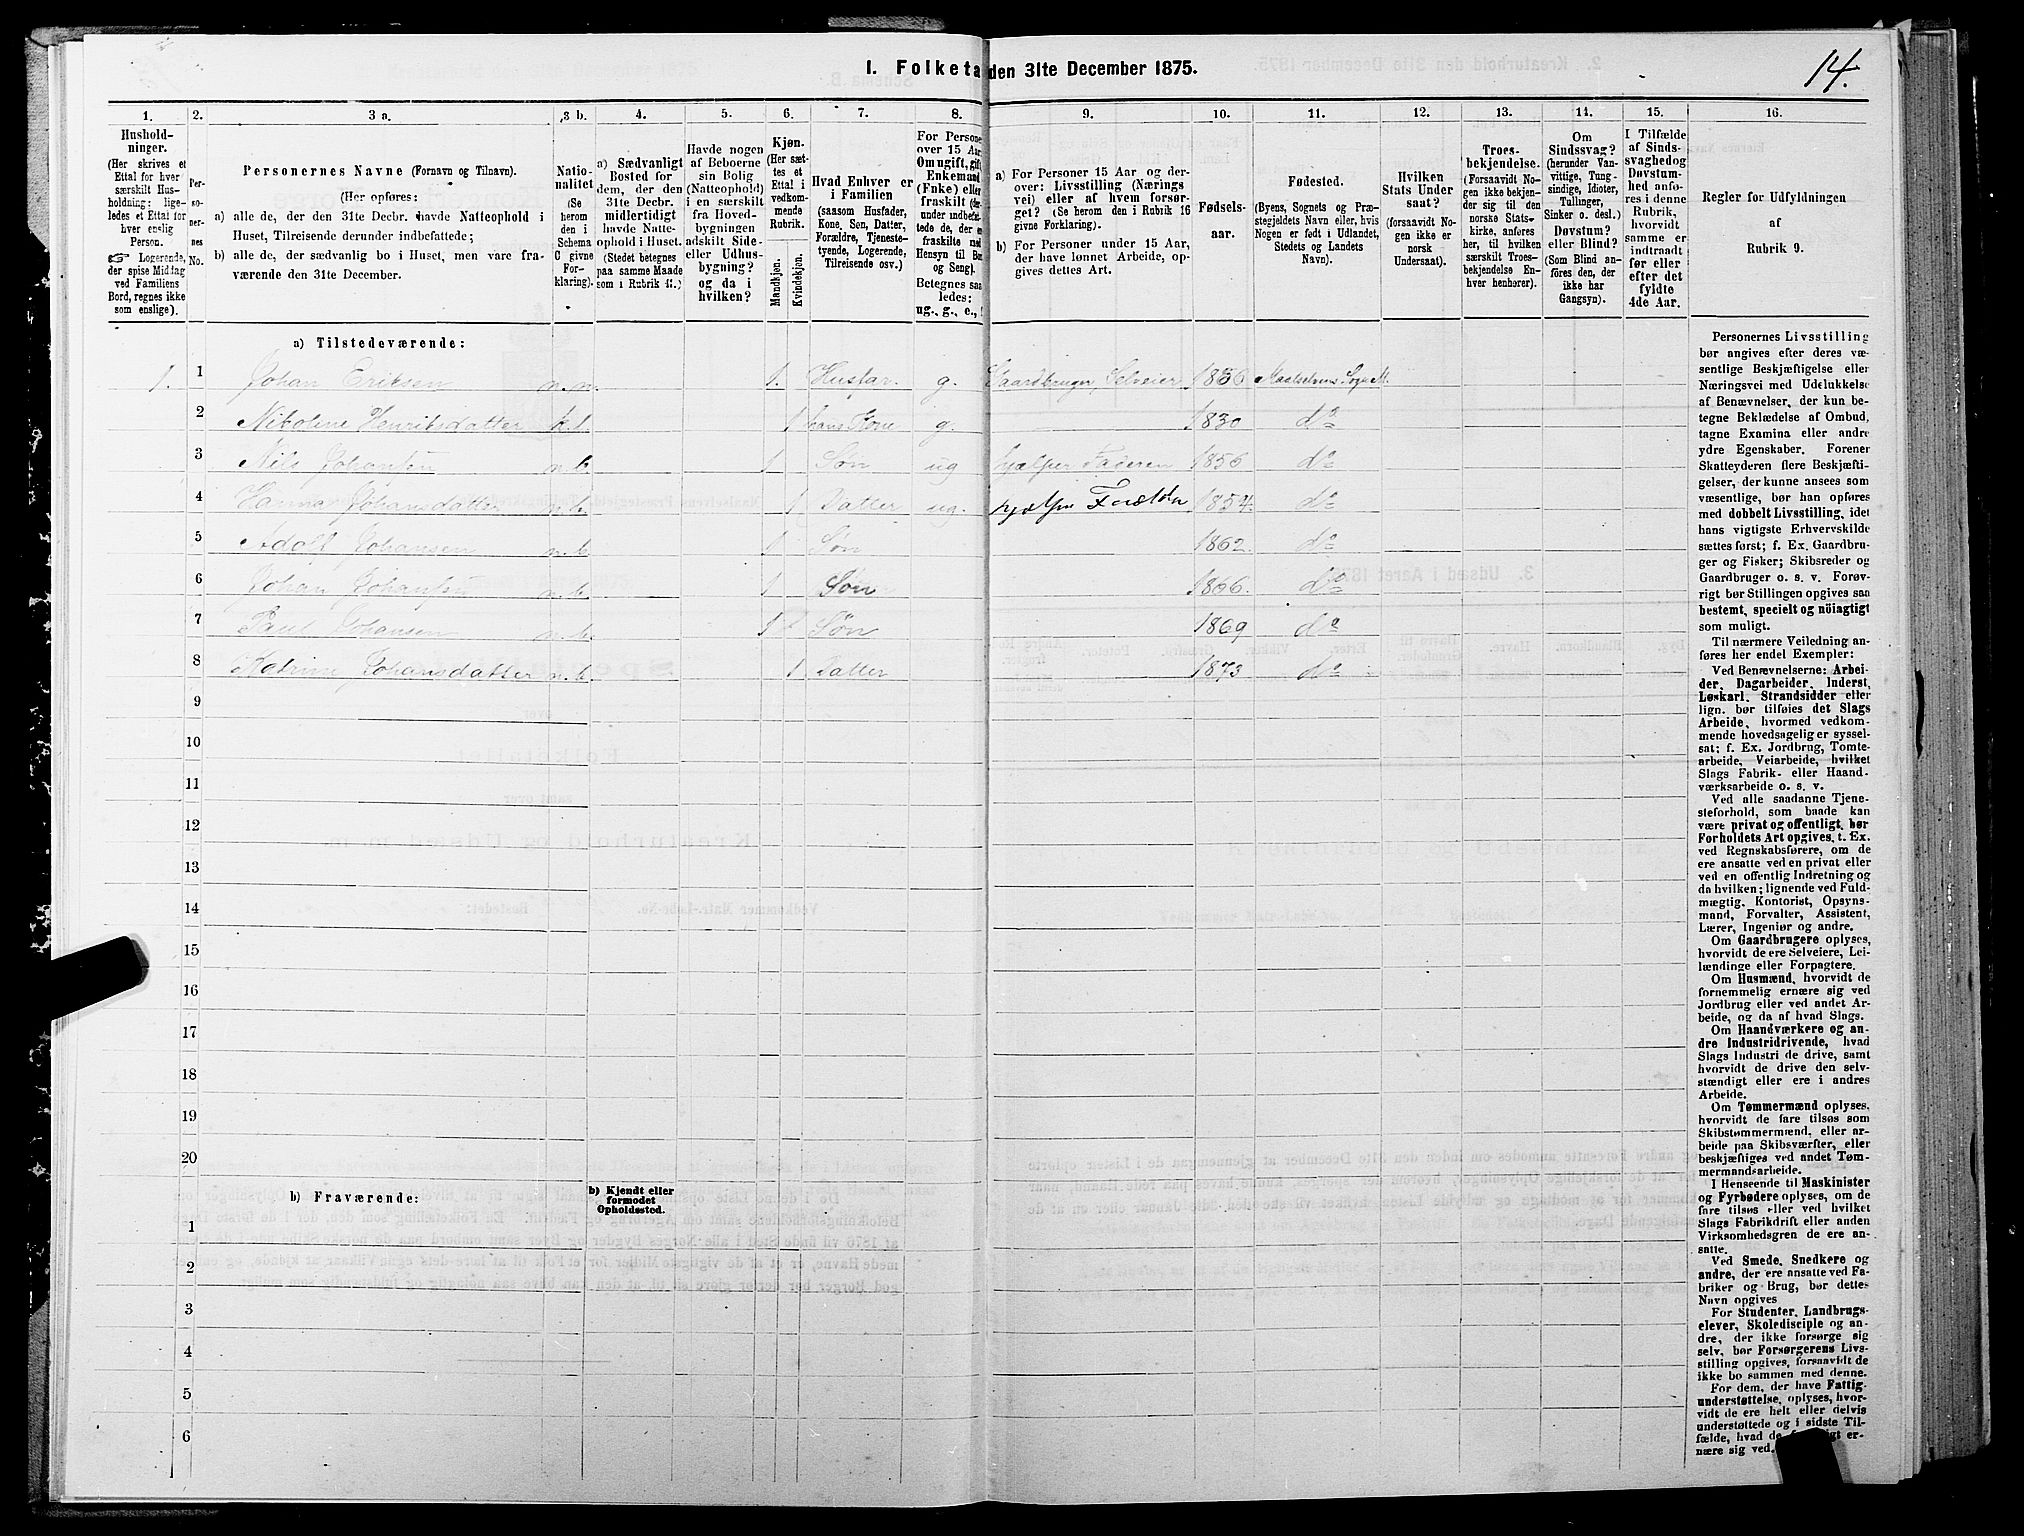 14.
I. Folketa den 31te December 1875.
1. 2. 3 a. 3 b. 4. 5. 6. 7. 8. 9. 10. 11. 12. 13. 14. 15. 16.
Hushold-
ninger.
(Her skrives et
Ettal for hver
særskilt Hus-
holdning; lige-
ledes et Ettal for
hver enslig
Person.
☞ Logerende,
der spise Middag
ved Familiens
Bord, regnes ikke
som enslige).
Per-
so-
ner-
nes
No.
Personernes Navne (Fornavn og Tilnavn).
(Her opføres:
a) alle de, der den 31te Decbr. havde Natteophold i
Huset, Tilreisende derunder indbefattede;
b) alle de, der sædvanlig bo i Huset, men vare fra-
værende den 31te December.
Natio-
nalitet
(Se
herom
den i
Schema
C givne
For-
klaring).
a) Sædvanligt
Bosted for
dem, der den
31te Decbr.
midlertidigt
havde Natte-
ophold i Huset.
(Stedet betegnes
paa samme Maade
som i Rubrik 11.)
Havde nogen
af Beboerne
sin Bolig
(Natteophold)
i en særskilt
fra Hoved-
bygningen
adskilt Side-
eller Udhus-
bygning?
og da i
hvilken?
Kjøn.
(Her sæt-
tes et
Ettal i
vedkom-
mende
Rubrik.
Mandkjøn.
Kvindekjøn.
Hvad Enhver er
i Familien
(saasom Husfader,
Kone, Søn, Datter,
Forældre, Tjeneste-
tyende, Logerende,
Tilreisende osv.)
For Persone
over 15 Aar
Om ugift, gift
Enkemand
(Enke) eller
fraskilt
Betegnes saa
ledes:
ug., g., e.,
a) For Personer 15 Aar og der-
over: Livsstilling (Nærings
vei) eller af hvem forsør-
get? (Se herom den i Rubrik 16
givne Forklaring).
b) For Personer under 15 Aar,
der have lønnet Arbeide, op-
gives dettes Art.
Fødsels-
aar.
Fødested.
(Byens, Sognets og Præ-
stegjeldets Navn eller, hvis
Nogen er født i Udlandet,
Stedets og Landets
Navn).
Hvilken
Stats Under
saat?
(forsaavidt No-
gen ikke er
norsk
Undersaat).
Troes-
bekjendelse.
(Forsaavidt No-
gen ikke bekjen-
der sig til den
norske Stats-
kirke, anføres
her, til hvilken
særskilt Troes-
bekjendelse En-
hver henhører).
Om
Sindssvag?
(herunder Van-
vittige, Tung-
sindige, Idioter,
Tullinger,
Sinker o. desl.)
Døvstum?
eller Blind?
(Som Blind an-
føres den, der
ikke har
Gangsyn).
I Tilfælde
af Sinds-
svaghed og
Døvstum-
hed anfø-
res i denne
Rubrik,
hvorvidt
samme er
indtraadt
før eller
efter det
fyldte
4de Aar.
Regler for Udfyldningen
af
Rubrik 9.
a) Tilstedeværende:
1. 1 Johan Eriksen n.n. 1. Husfar. g. Gaardbruger, Selveier 1836 Maalselvens Sogn M.
2 Nikoline Henriksdatter k.b. 1 hans Kone g. 1830 do
3 Nils Johansen n.b. 1 Søn ug hjælper Faderen 1856 do
4 Hanna Johansdatter n.b. 1 Datter ug. 1854. do
5 Adolf Johansen n.b. 1 Søn 1862. do
6 Johan Johansen n.b. 1 Søn 1866. do
7 Paul Johansen n.b. 1 Søn 1869 do
8 Katrine Johansdatter n.b. 1 Datter 1873 do
9
10
11
12
13
14
15
16
17
18
19
20
b) Fraværende:
b) Kjendt eller
formodet
Opholdssted.
1
2
3
4
5
6
Personernes Livsstilling
bør angives efter deres væ-
sentlige Beskjæftigelse eller
Næringsvei med Udelukkelse
af Benævnelser, der kun be-
tegne Beklædelse af Ombud,
tagne Examina eller andre
ydre Egenskaber. Forener
Skatteyderen flere Beskjæfti-
gelser, der kunne ansees som
væsentlige, bør han opføres
med dobbelt Livsstilling, idet
hans vigtigste Erhvervskilde
sættes først; f. Ex. Gaardbru-
ger og Fisker; Skibsreder og
Gaardbruger o. s. v. Forøv-
rigt bør Stillingen opgives saa
bestemt, specielt og nöiagtigt
som muligt.
Til nærmere Veiledning an-
føres her endel Exempler:
Ved Benævnelserne: Arbei-
der, Dagarbeider, Inderst,
Løskarl, Strandsidder eller
lign. bør tilføies det Slags
Arbeide, hvormed vedkom-
mende hovedsagelig er syssel-
sat; f. Ex. Jordbrug, Tomte-
arbeide, Veiarbeide, hvilket
Slags Fabrik- eller Haand-
værksarbeide o. s. v.
Ved alle saadanne Tjene-
steforhold, som baade kan
være privat og offentligt, bør
Forholdets Art opgives, t. Ex.
ved Regnskabsførere, om de
ere ansatte ved en privat eller
ved en offentlig Indretning og
da hvilken; lignende ved Fuld-
mægtig, Kontorist, Opsyns-
mand, Forvalter, Assistent,
Lærer, Ingeniør og andre.
Om Gaardbrugere oplyses,
hvorvidt de ere Selveiere, Lei-
lændinge eller Forpagtere.
Om Husmænd, hvorvidt de
fornemmelig ernære sig ved
Jordbrug eller ved andet Ar-
beide, og da af hvad Slags.
Om Haandværkere og an-
dre Industridrivende, hvad
Slags Industri de drive, samt
hvorvidt de drive den selv-
stændigt eller ere i andres
Arbeide.
Om Tømmermænd oplyses,
hvorvidt de fare tilsøs som
Skibstømmermænd, eller ar-
beide paa Skibsværfter, eller
beskjæftiges ved andet Tøm-
mermandsarbeide.
I Henseende til Maskinister
og Fyrbødere oplyses, om de
fare tilsøs eller ved hvilket
Slags Fabrikdrift eller anden
Virksomhedsgren de ere an-
satte.
Ved Smede, Snedkere og
andre, der ere ansatte ved Fa-
briker og Brug, bør dettes
Navn opgives
For Studenter, Landbrugs-
elever, Skoledisciple og an-
dre, der ikke forsørge sig
selv, bør Forsørgerens Livs-
stilling opgives, forsaavidt de
ikke bo sammen med denne.
For dem, der have Fattig-
understøttelse, oplyses, hvor-
vidt de ere helt eller delvis
understøttede og i sidste Til-
fælde, hvad de er-
nære sig ved.